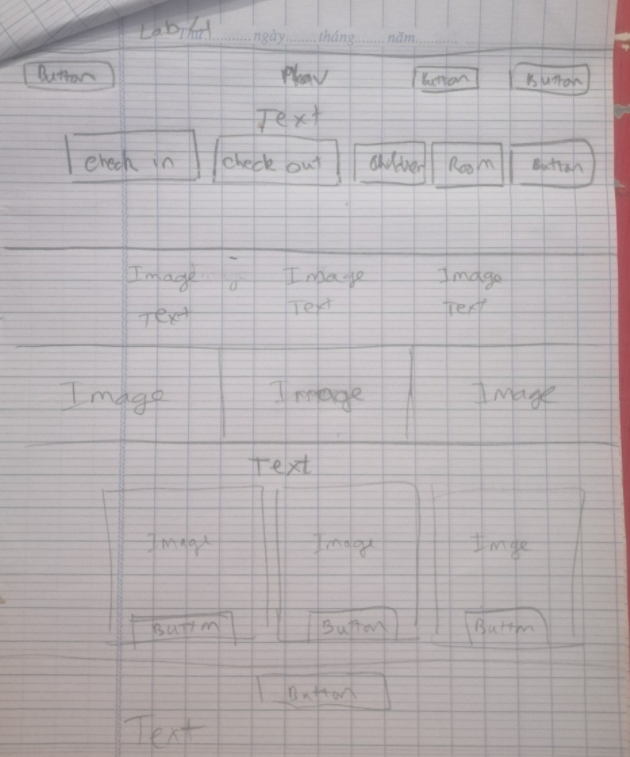 Lab 1
Thứ ngày tháng năm
Button Button Button
Text
check in check out Children Room Button
Image Image Image
Text Text Text
Image Image Image
Text
Image Image Imge
Button Button Button
Button
Text